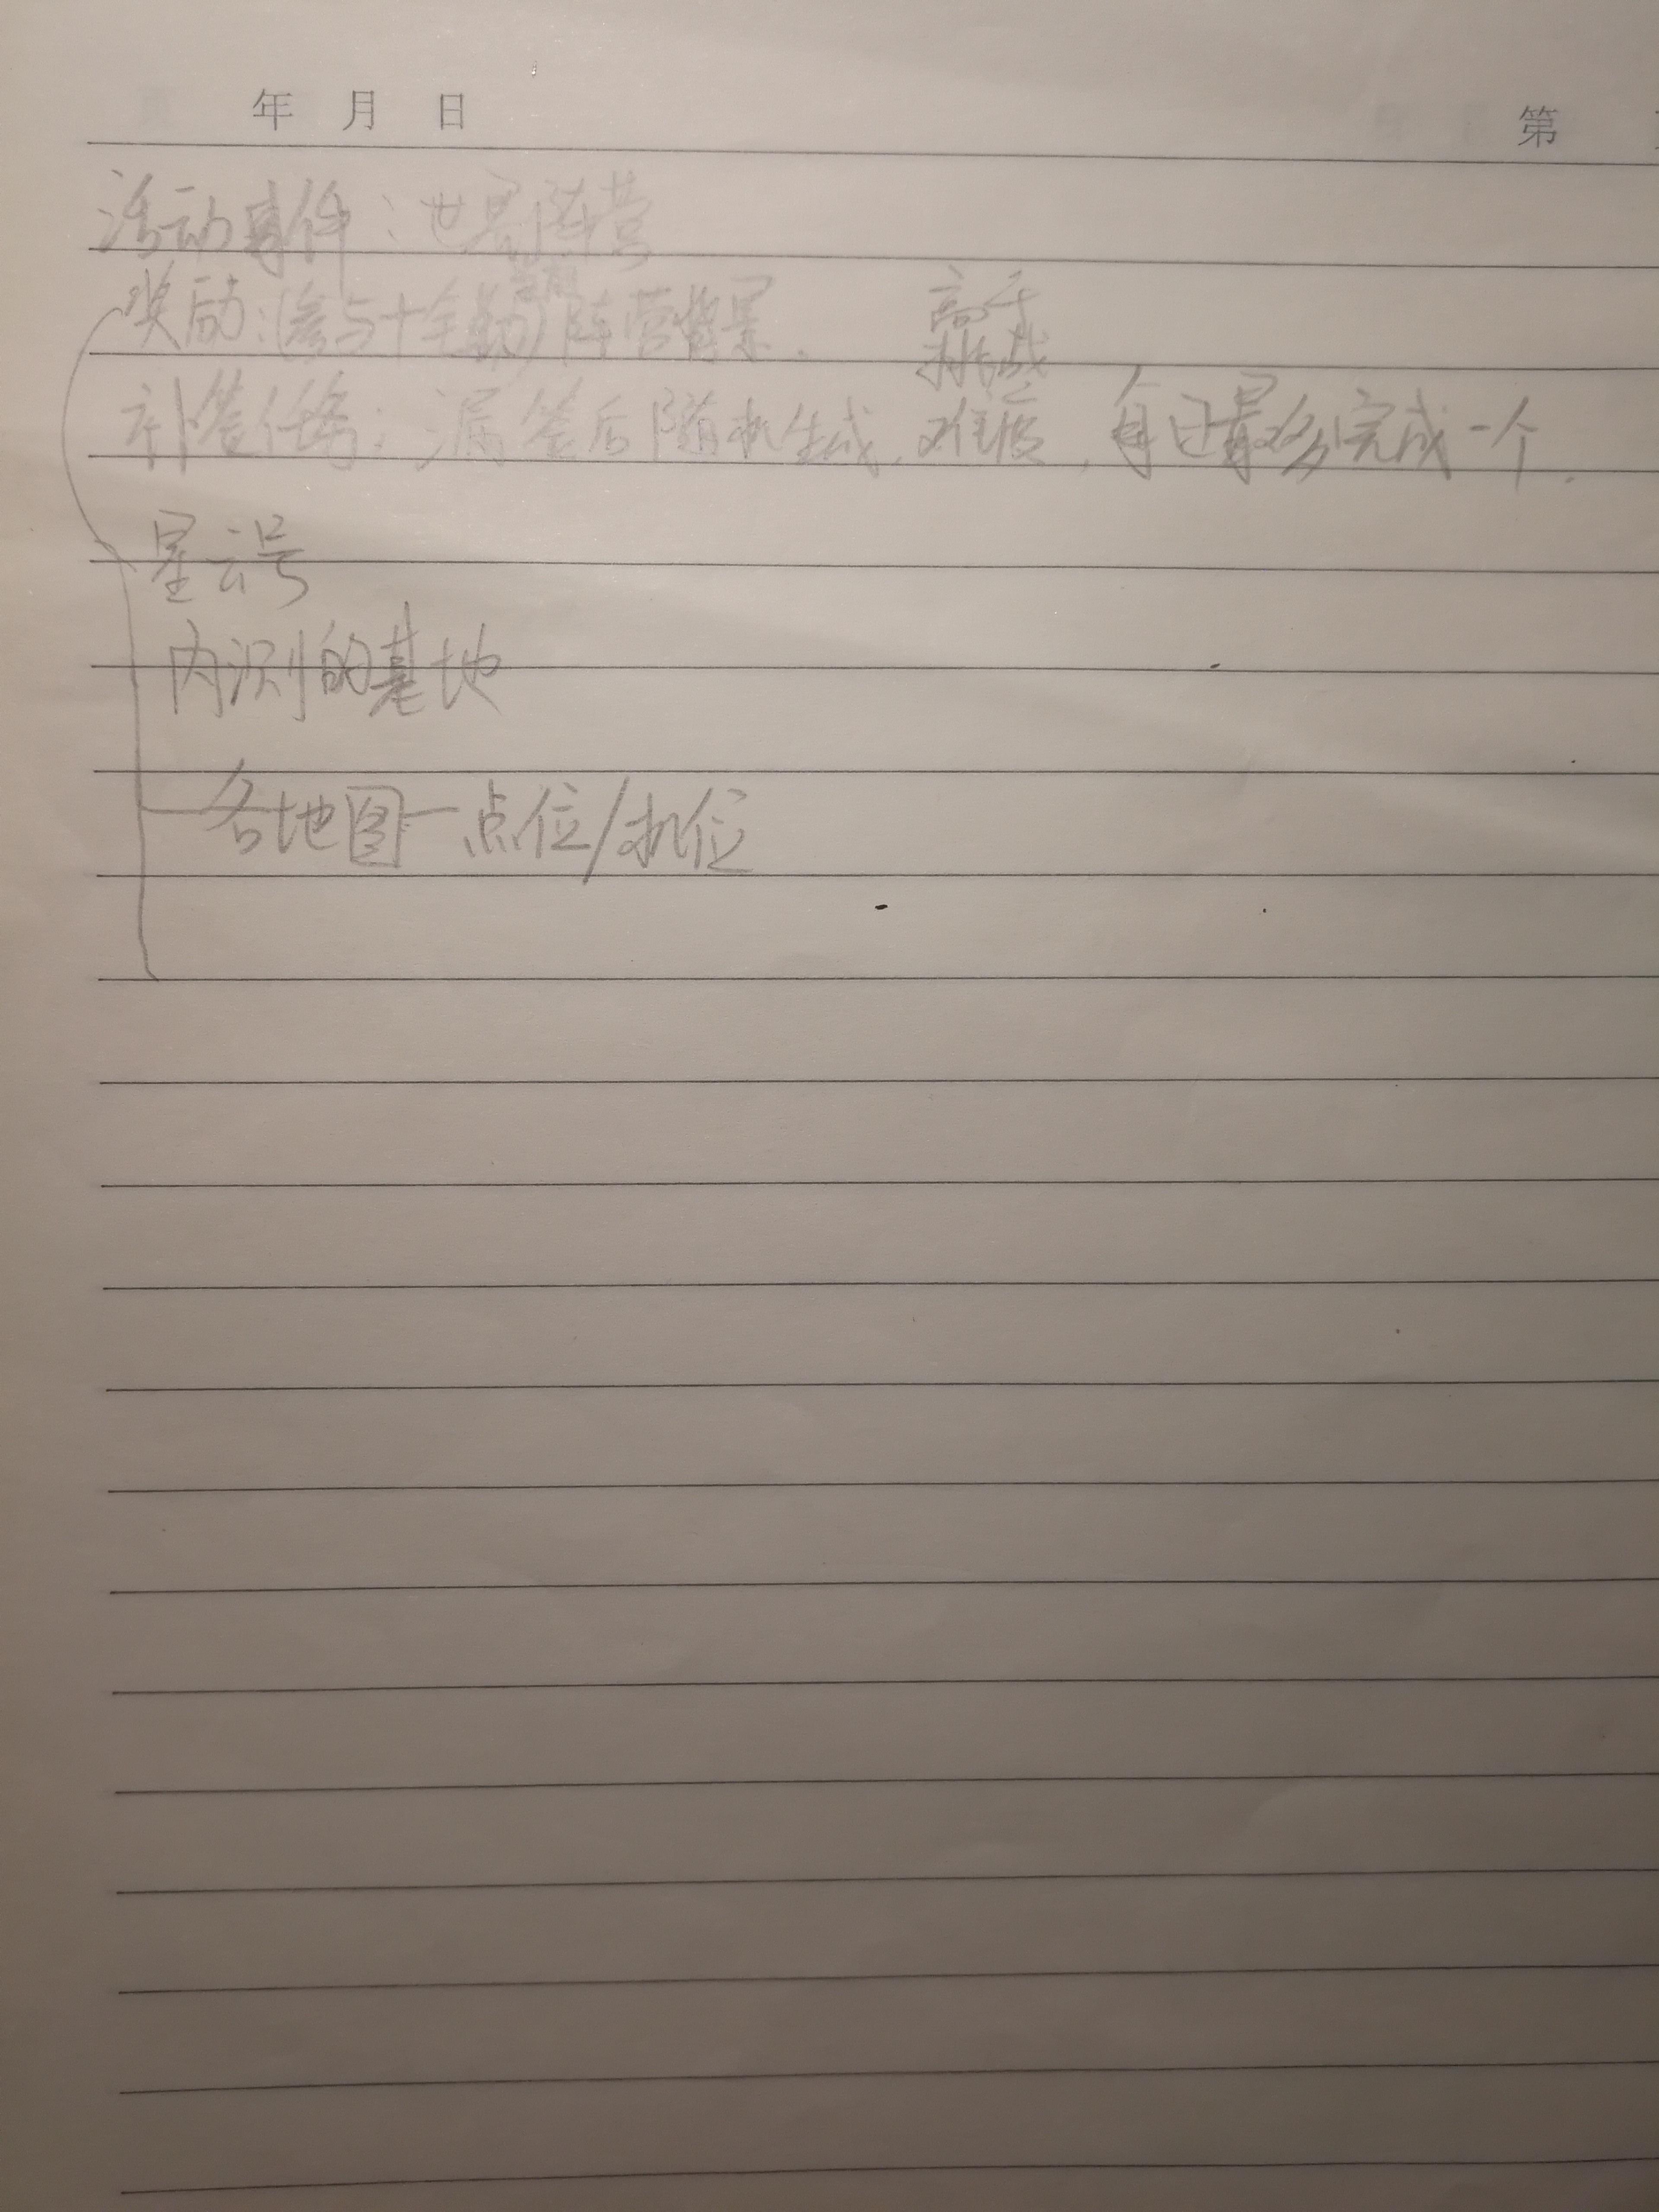 年 月 日 第
活动事件：世界阵营
奖励：(参与十全勤)阵营背景.
高于
挑战
补签任务：漏签后随机生成,难度,每日最多完成一个.
星云号
内测的基地
各地图一点位/机位